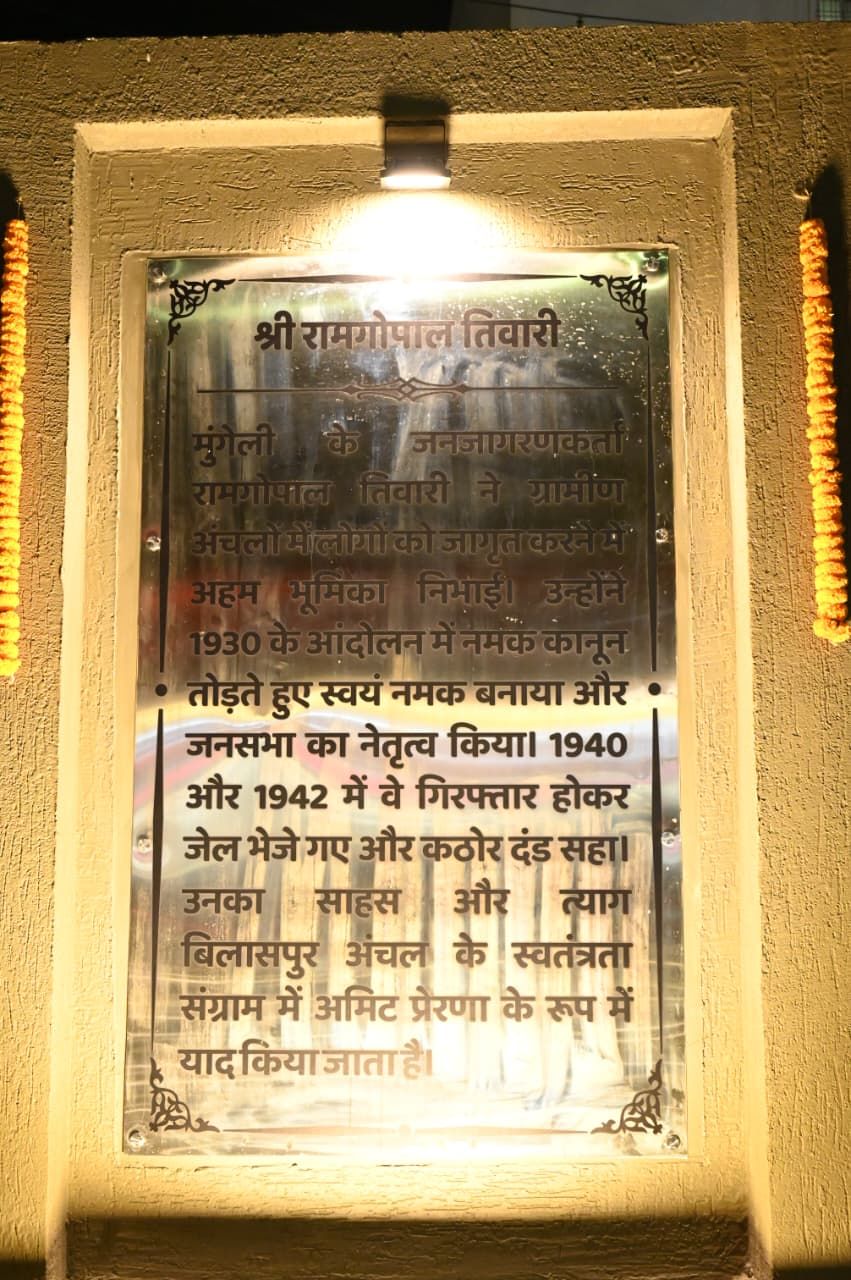 श्री रामगोपाल तिवारी
मुंगेली के जनजागरणकर्ता
रामगोपाल तिवारी ने ग्रामीण
अंचलों में लोगों को जागृत करने में
अहम भूमिका निभाई। उन्होंने
1930 के आंदोलन में नमक कानून
तोड़ते हुए स्वयं नमक बनाया और
जनसभा का नेतृत्व किया। 1940
और 1942 में वे गिरफ्तार होकर
जेल भेजे गए और कठोर दंड सहा।
उनका साहस और त्याग
बिलासपुर अंचल के स्वतंत्रता
संग्राम में अमिट प्रेरणा के रूप में
याद किया जाता है।